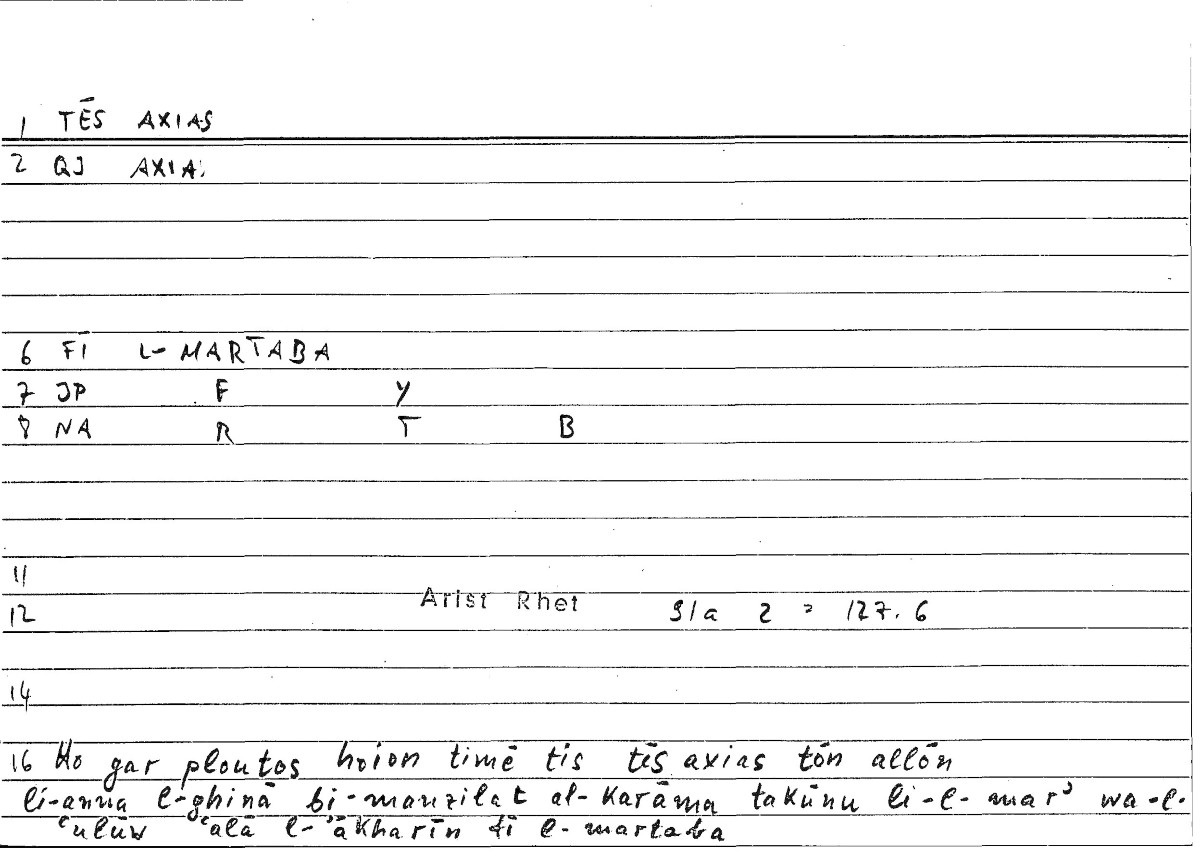 1 TĒS AXIAS
2 QJ AXIA
6 FĪ L-MARTABA
7 JP F Y
8 NA R T B
11
12 Arist Rhet 91a 2 = 127.6
14
16 Ho gar ploutos hoion timē tis tēs axias tōn allōn
li-anna l-ghinā bi-manzilat al-karāma takūnu li-l-marʾ wa-l-
ʿulūw ʿalā l-ʾākharīn fī l-martaba